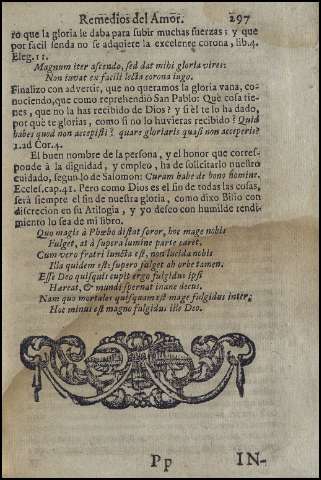 Remedios del Amor. 297
ro que la gloria le daba para subir muchas fuerzas; y que
por facil senda no se adquiere la excelente corona, lib.4.
Eleg.11.
Magnum iter ascendo, sed dat mihi gloria vires:
Non iuvat ex facili lecta corona iugo.
Finalizo con advertir, que no queramos la gloria vana, co-
nociendo, que como reprehendió San Pablo: Què cosa tie-
nes, que no la has recibido de Dios? y si èl te lo ha dado,
por què te glorias, como si no lo huvieras recibido? Quid
habes quod non accepisti? quare gloriaris quasi non acceperis?
1.ad Cor.4.
El buen nombre de la persona, y el honor que corres-
ponde à la dignidad, y empleo, ha de solicitarlo nuestro
cuidado, segun lo de Salomon: Curam habe de bono nomine.
Eccles. cap.41. Pero como Dios es el fin de todas las cosas,
serà siempre el fin de nuestra gloria, como dixo Bisio con
discrecion en su Atilogia, y yo deseo con humilde rendi-
miento lo sea de mi libro.
Quo magis à Phœbo distat soror, hoc mage nobis
Fulget, at à supera lumine parte caret.
Cum vero fratri iuncta est, non lucida nobis
Illa quidem est: supero fulget ab orbe tamen.
Esse Deo quisquis cupit ergo fulgidus ipsi
Hæreat, & mundi spernat inane decus.
Nam quo mortales quisquam est mage fulgidus inter;
Hoc minus est magno fulgidus iste Deo.
Pp IN-